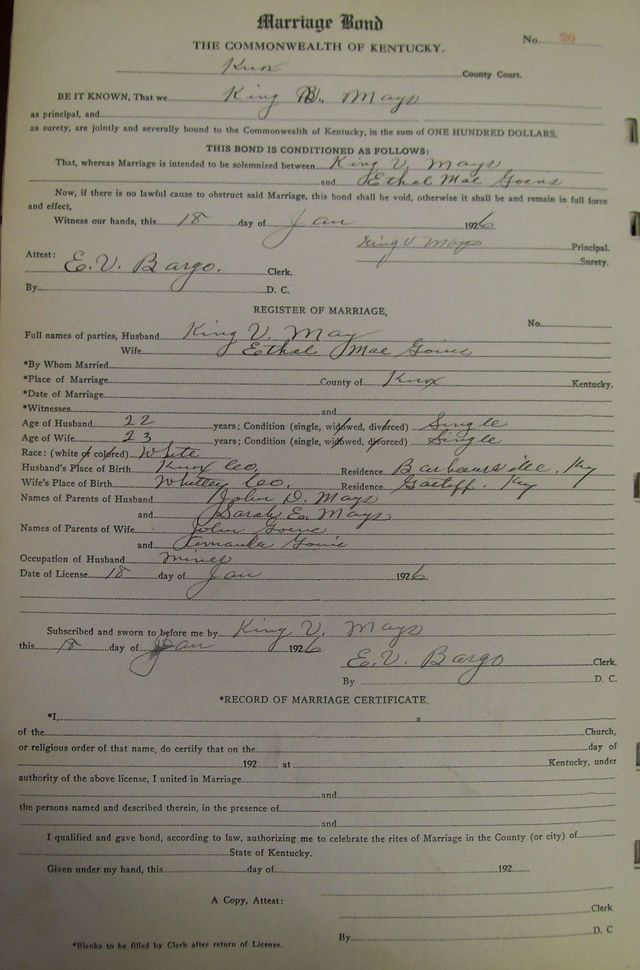 Marriage Bond
No. 20
THE COMMONWEALTH OF KENTUCKY.
Knox County Court.
BE IT KNOWN, That we King V. Mays
as principal, and
as surety, are jointly and severally bound to the Commonwealth of Kentucky, in the sum of ONE HUNDRED DOLLARS.
THIS BOND IS CONDITIONED AS FOLLOWS:
That, whereas Marriage is intended to be solemnized between King V. Mays
and Ethel Mae Goens
Now, if there is no lawful cause to obstruct said Marriage, this bond shall be void, otherwise it shall be and remain in full force
and effect,
Witness our hands, this 18 day of Jan 1926
King V Mays Principal.
Surety.
Attest: E. V. Bargo. Clerk.
By D. C.
REGISTER OF MARRIAGE,
No.
Full names of parties, Husband King V. May
Wife Ethel Mae Goine
*By Whom Married
*Place of Marriage County of Knox Kentucky.
*Date of Marriage
*Witnesses and
Age of Husband 22 years; Condition (single, widowed, divorced) Single
Age of Wife 23 years; Condition (single, widowed, divorced) Single
Race: (white or colored) White
Husband's Place of Birth Knox Co. Residence Barbourville, Ky
Wife's Place of Birth Whitley Co. Residence Gatliff. Ky
Names of Parents of Husband John D. Mays
and Sarah E. Mays
Names of Parents of Wife John Goine
and Goine
Occupation of Husband Miner
Date of License 18 day of Jan 1926
Subscribed and sworn to before me by King V. Mays
this 18 day of Jan 1926
E. V. Bargo Clerk.
By D. C.
*RECORD OF MARRIAGE CERTIFICATE.
*I, a
of the Church,
or religious order of that name, do certify that on the day of
192 , at Kentucky, under
authority of the above license, I united in Marriage
and
the persons named and described therein, in the presence of
and
I qualified and gave bond, according to law, authorizing me to celebrate the rites of Marriage in the County (or city) of
State of Kentucky.
Given under my hand, this day of 192
A Copy, Attest:
Clerk
By D. C
*Blanks to be filled by Clerk after return of License.